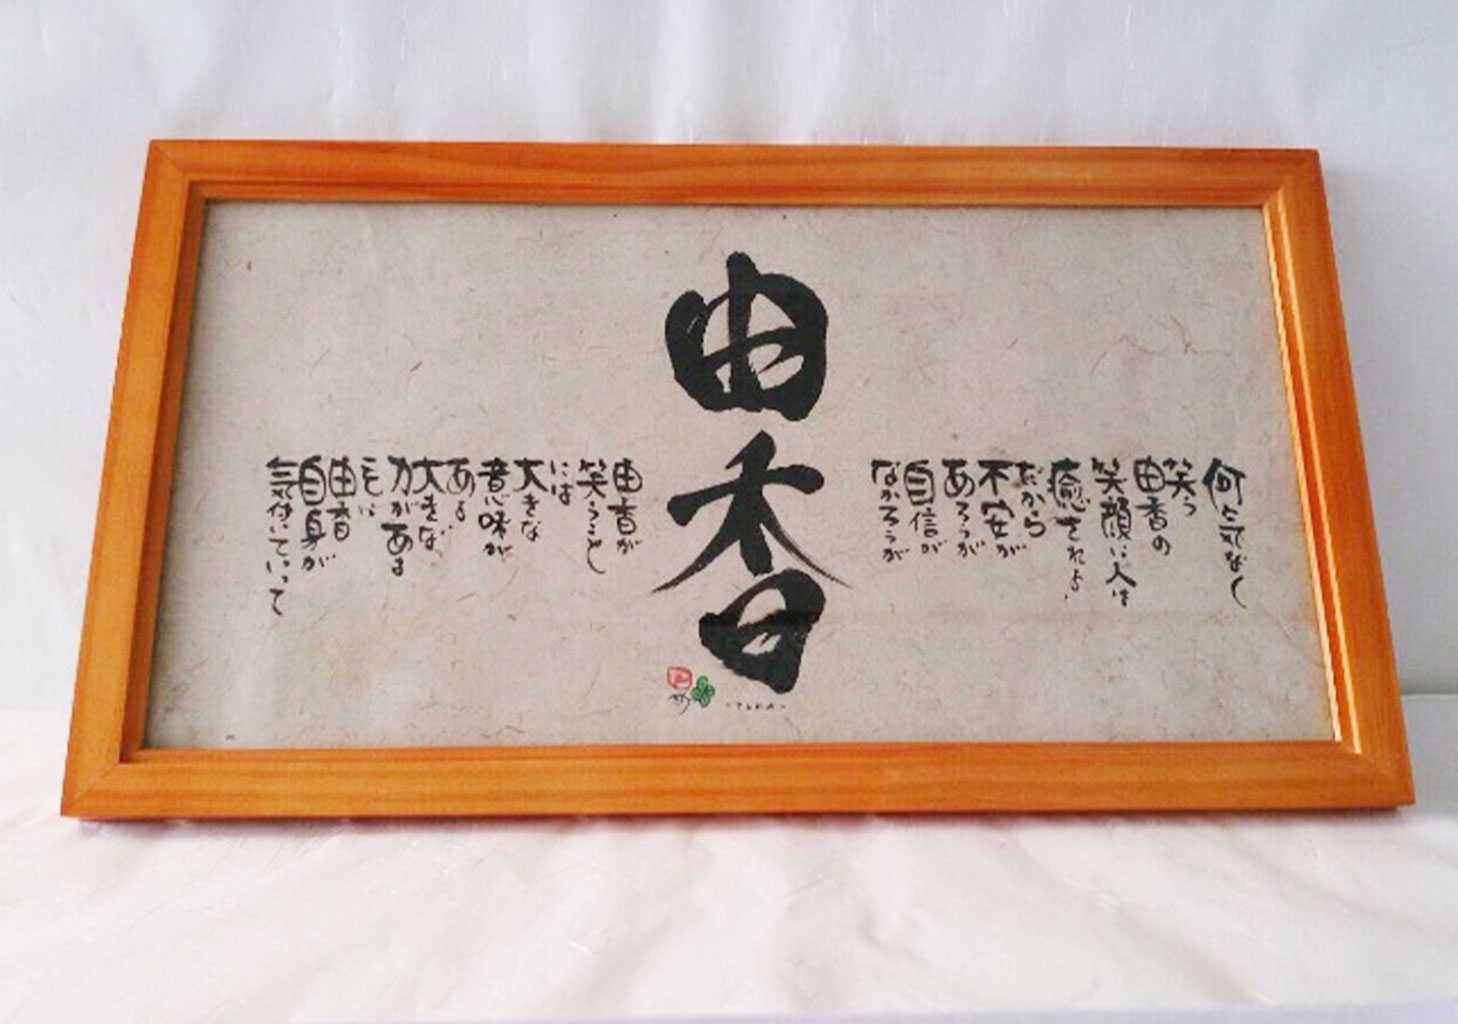 何気なく
笑う
由香の
笑顔に人は
癒されよ
だから
不安が
あろうが
自信が
なかろうが
由香
由香が
笑うこと
には
大きな
意味が
ある
大きな
力がある
由香
自身が
気付いていって
-YUKA-